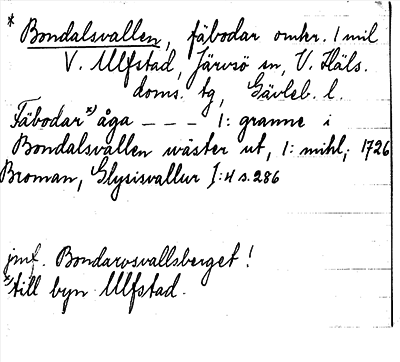 * Bondalsvallen, fäbodar omkr. 1 mil
V. Ulfstad, Järvsö sn, V. Häls.
doms. tg, Gävleb. l.
Fäbodar *) åga - - - 1: granne i
Bondalsvallen wäster ut, 1: mihl; 1726
Broman, Glysisvallur I:4 s. 286
jmf. Bondarvsvallsberget!
*) till byn Ulfstad.